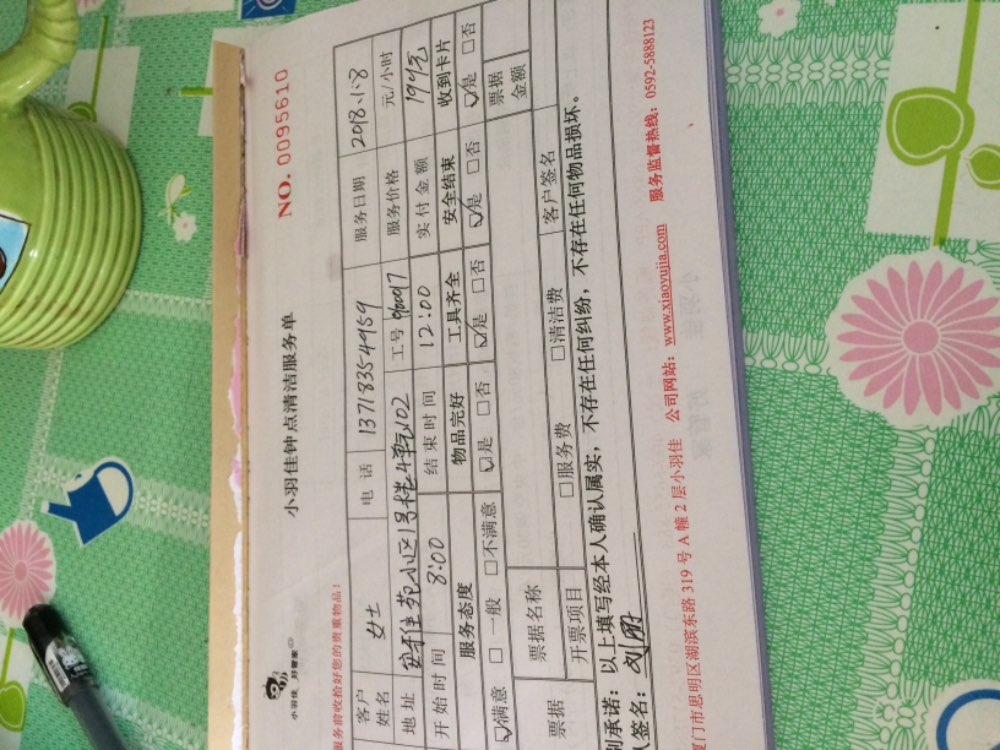 小羽佳 好管家
小羽佳钟点清洁服务单
NO. 0095610
服务前收拾好您的贵重物品！
客户姓名 女士 电话 13718354959 服务日期 2018.1.8
地址 安平佳苑小区1号楼4单元102 工号 服务价格 元/小时
开始时间 8:00 结束时间 12:00 实付金额 199元
服务态度 物品完好 工具齐全 安全结束 收到卡片
☑满意 □一般 □不满意 ☑是 □否 ☑是 □否 ☑是 □否 ☑是 □否
票据 票据名称 票据金额
开票项目 □服务费 □清洁费 客户签名
承诺：以上填写经本人确认属实，不存在任何纠纷，不存在任何物品损坏。
签名：刘丽
厦门市思明区湖滨东路 319 号 A 幢 2 层小羽佳 公司网站：www.xiaoyujia.com 服务监督热线：0592-5888123